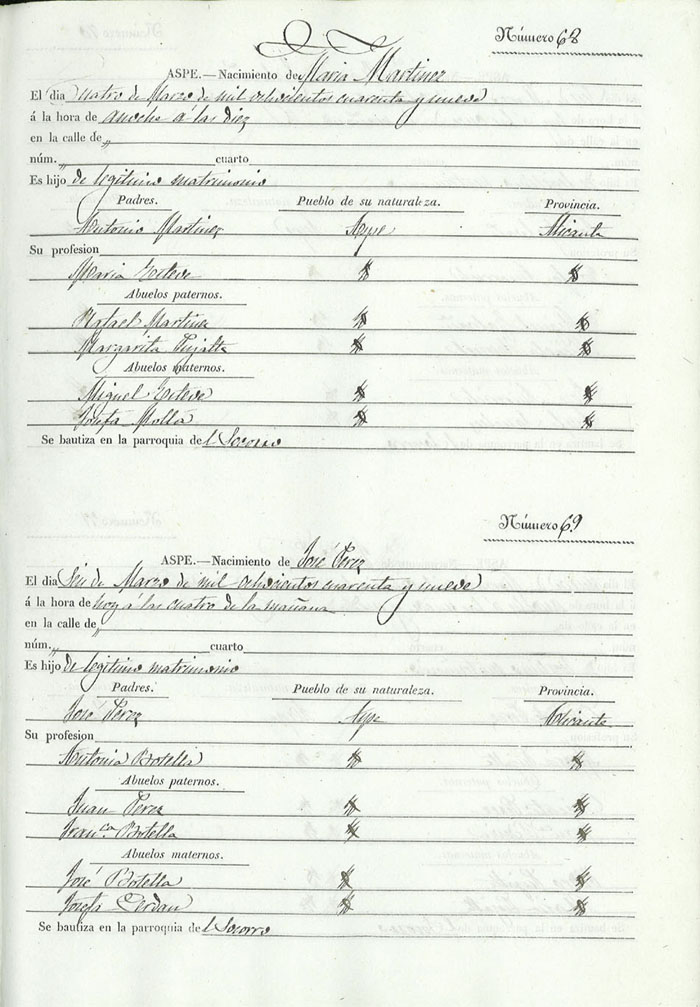 Número 68
ASPE.—Nacimiento de Maria Martinez
El dia Cuatro de Marzo de mil ochocientos cuarenta y nueve
á la hora de anoche á las diez
en la calle de „
núm. „ cuarto
Es hijo de legitimo matrimonio
Padres. Pueblo de su naturaleza. Provincia.
Antonio Martinez Aspe Alicante
Su profesion
Maria Esteve
Abuelos paternos.
Rafael Martinez
Margarita Pujalte
Abuelos maternos.
Miguel Esteve
Josefa Mollá
Se bautiza en la parroquia del Socorro
Número 69
ASPE.—Nacimiento de José Perez
El dia Seis de Marzo de mil ochocientos cuarenta y nueve
á la hora de hoy á las cuatro de la mañana
en la calle de „
núm. cuarto
Es hijo de legitimo matrimonio
Padres. Pueblo de su naturaleza. Provincia.
José Perez Aspe Alicante
Su profesion
Antonia Botella
Abuelos paternos.
Juan Perez
Fran.ca Botella
Abuelos maternos.
José Botella
Josefa Cerdan
Se bautiza en la parroquia del Socorro